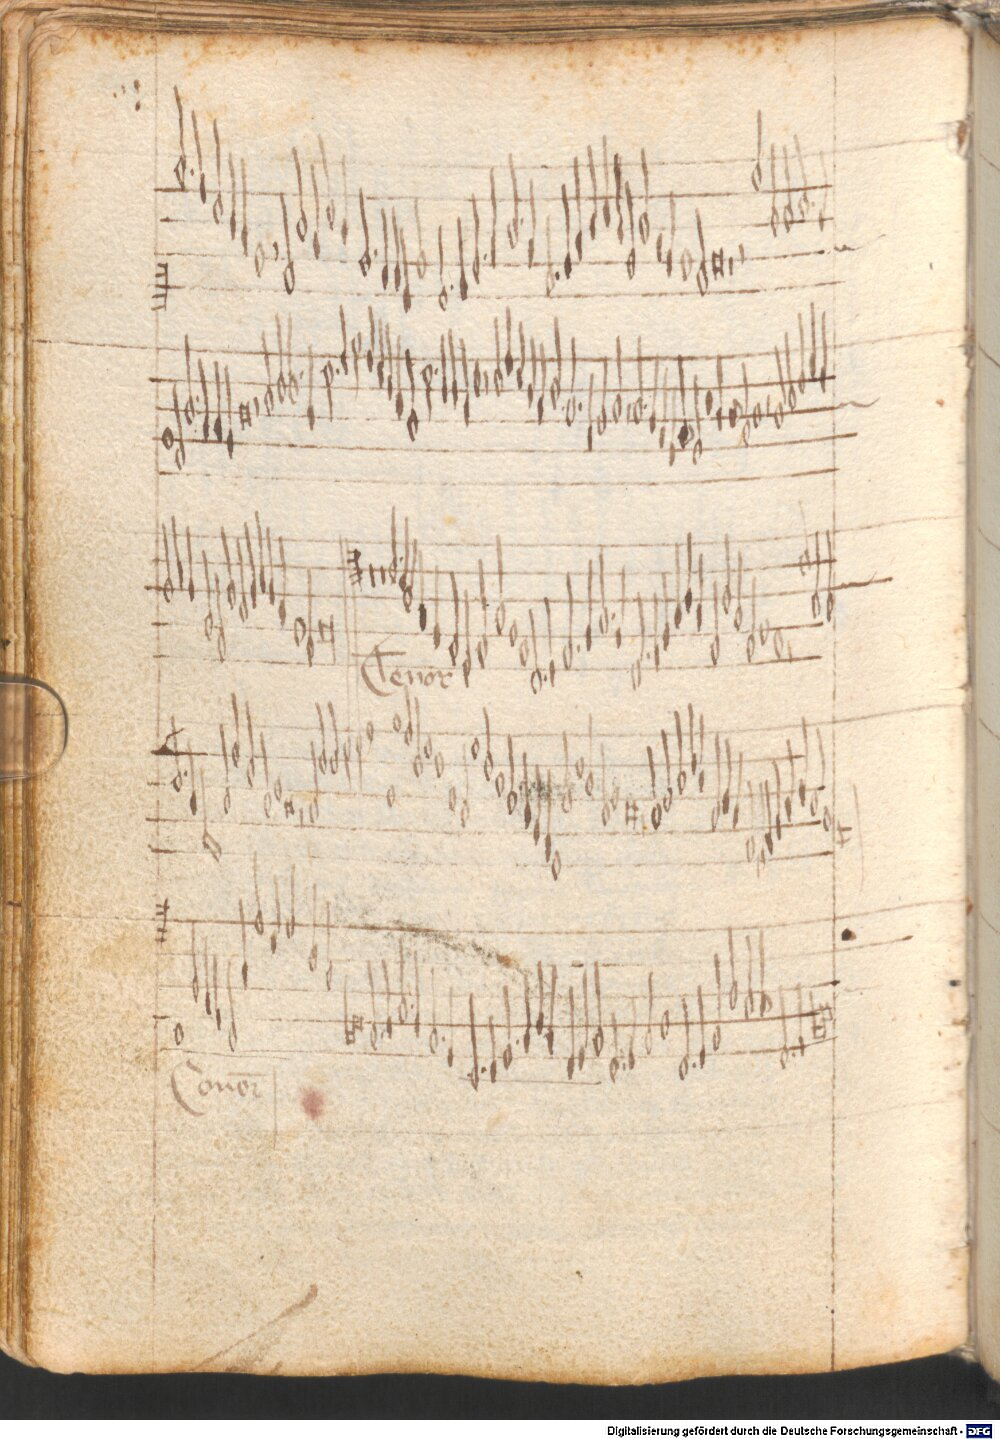 Tenor
Digitalisierung gefördert durch die Deutsche Forschungsgemeinschaft - DFG